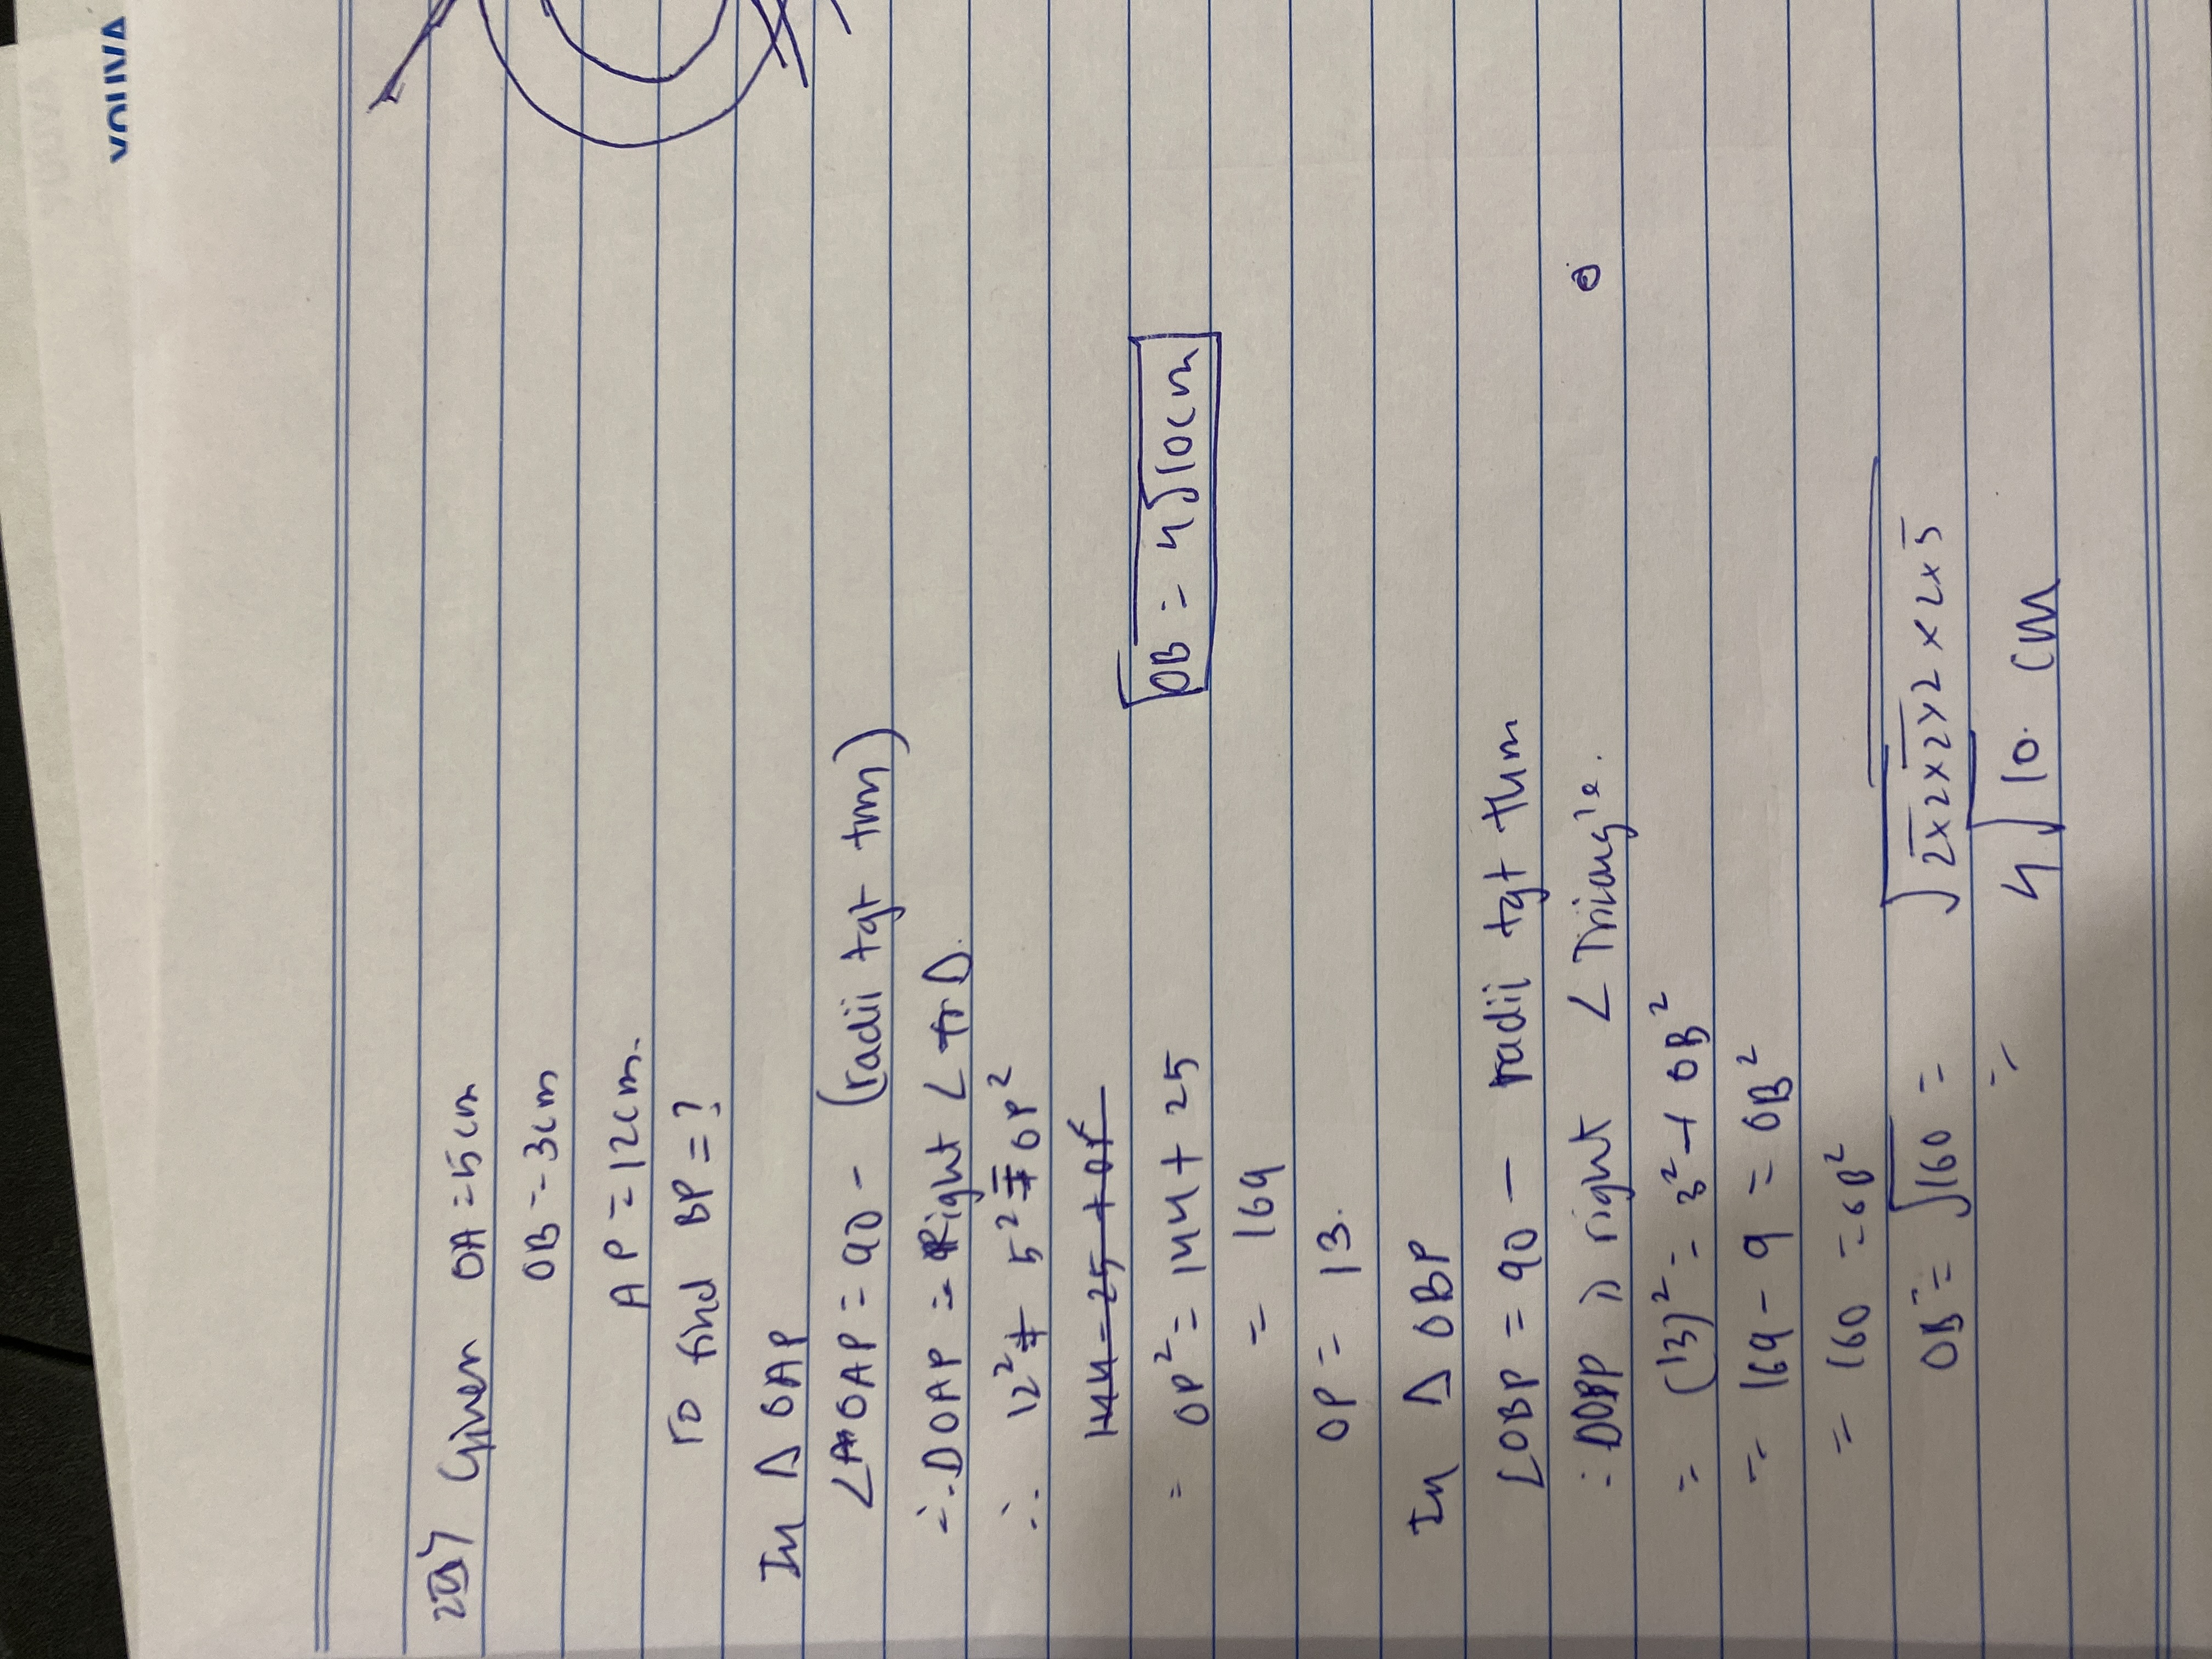 Given OA = 5cm
OB = 3cm
AP = 12cm.
To find BP = ?
In Δ OAP
∠OAP = 90 - (radii tgt tm)
∴ ΔOAP = Right ∠ Δ.
∴ 12² + 5² = OP²
144 = 25 + OP
= OP² = 144 + 25
= 169
OP = 13.
OB = 4√10cm
In Δ OBP
∠OBP = 90 - radii tgt thm
∴ ΔOBP right ∠ Triangle.
= (13)² = 3² + OB²
= 169 - 9 = OB²
= 160 = OB²
OB = √160 = √2x2x2x2x2x5
= 4√10. cm